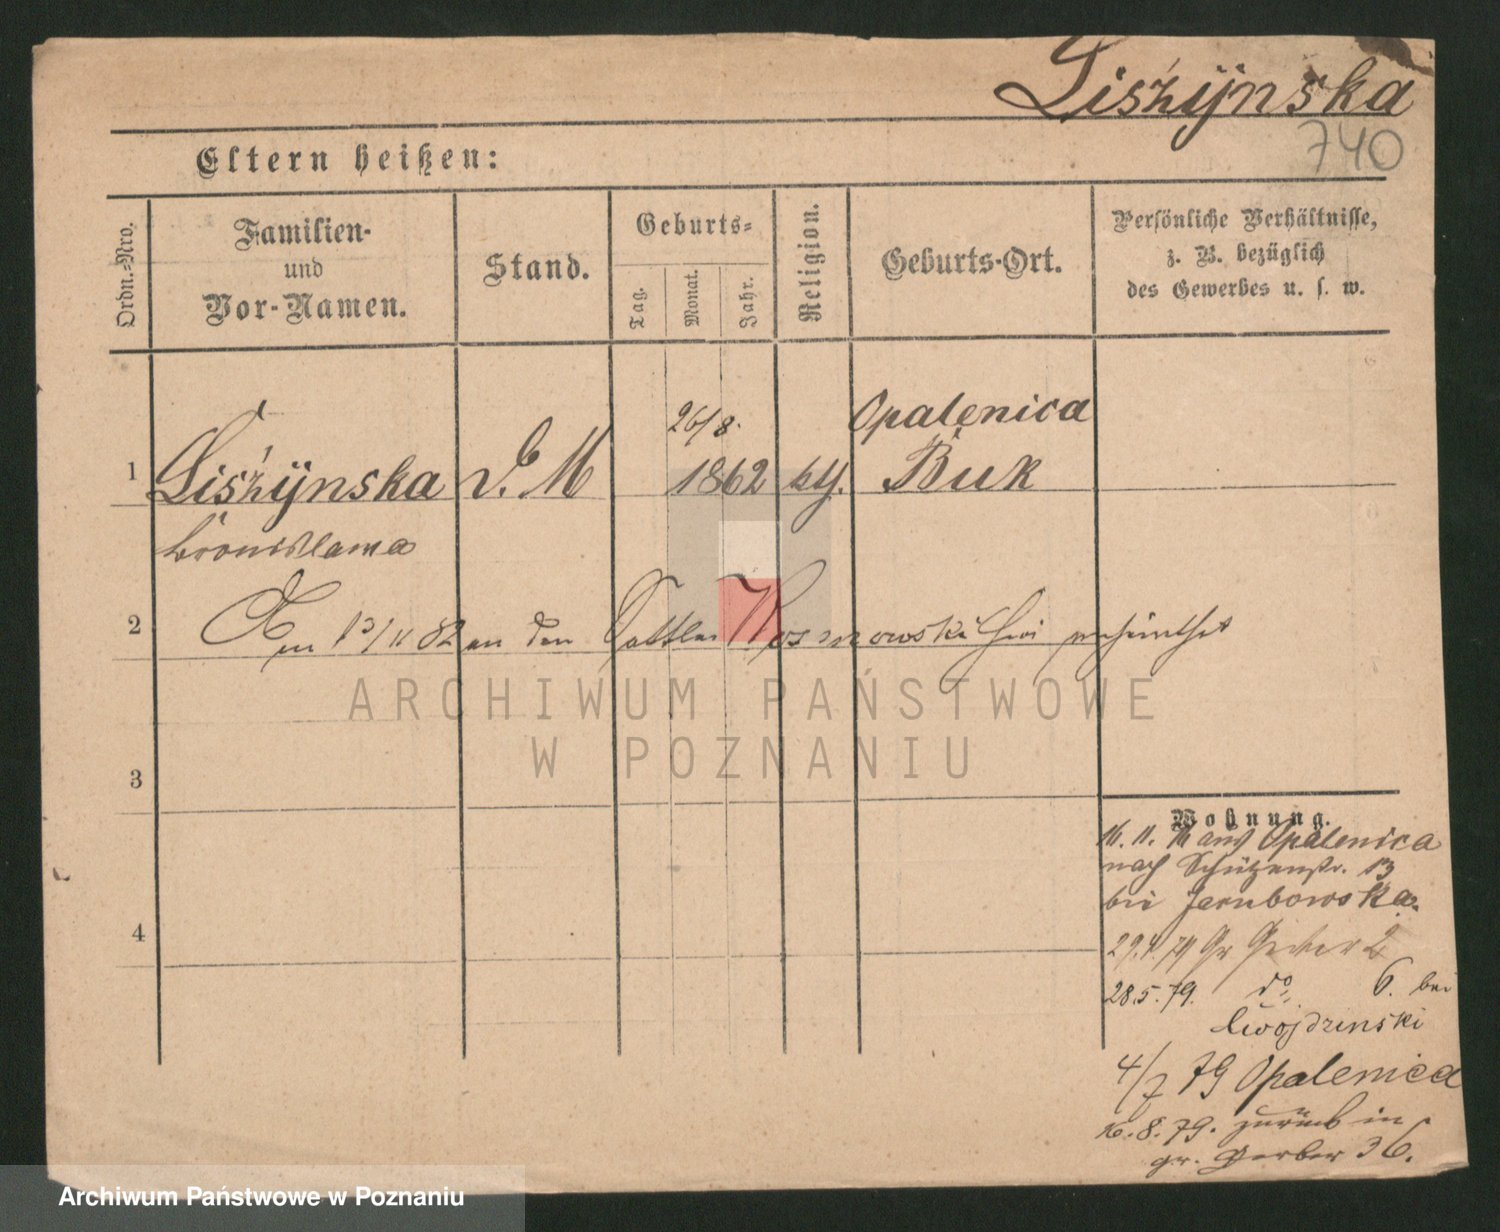 Liszÿnska
740
Eltern heißen:
Ordn.-Nro.
Familien-
und
Vor-Namen.
Stand.
Geburts-
Tag.
Monat.
Jahr.
Religion.
Geburts-Ort.
Persönliche Verhältnisse,
z. B. bezüglich
des Gewerbes u. s. w.
26/8.
Opalenica
1 Liszÿnska M 1862 Buk
Bronislawa
2 Am 13/11 82 an den Sattler verheirathet
ARCHIWUM PAŃSTWOWE
W POZNANIU
3
Wohnung.
16. 11. aus Opalenica
nach Schützenstr. 13
bei
4
29.4.79 Gr
28.5.79. do 6. bei
4/7 79 Opalenica
16.8.79. zurück in
gr. Gerber 36.
Archiwum Państwowe w Poznaniu